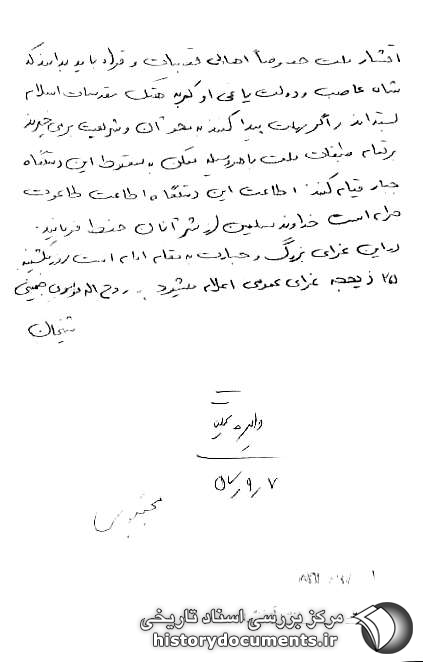 اقشار ملت خصوصاً اهالی قصبات و قراء باید بدانند که
شاه غاصب و دولت یاغی او کمر به هتک مقدسات اسلام
بسته‌اند و اگر مهلت پیدا کنند به محو قرآن و شریعت برمی‌خیزند
بر تمام طبقات ملت با هر وسیله ممکن به سقوط این دستگاه
جبار قیام کنند اطاعت این دستگاه اطاعت طاغوت
حرام است خداوند مسلمین از شر آنان حفظ فرماید.
در این عزای بزرگ و جسارت به مقام امام است روز یکشنبه
۲۵ ذیحجه عزای عمومی اعلام میشود روح اله موسوی خمینی
۷ ر ۹ ر
مرکز بررسی اسناد تاریخی
historydocuments.ir